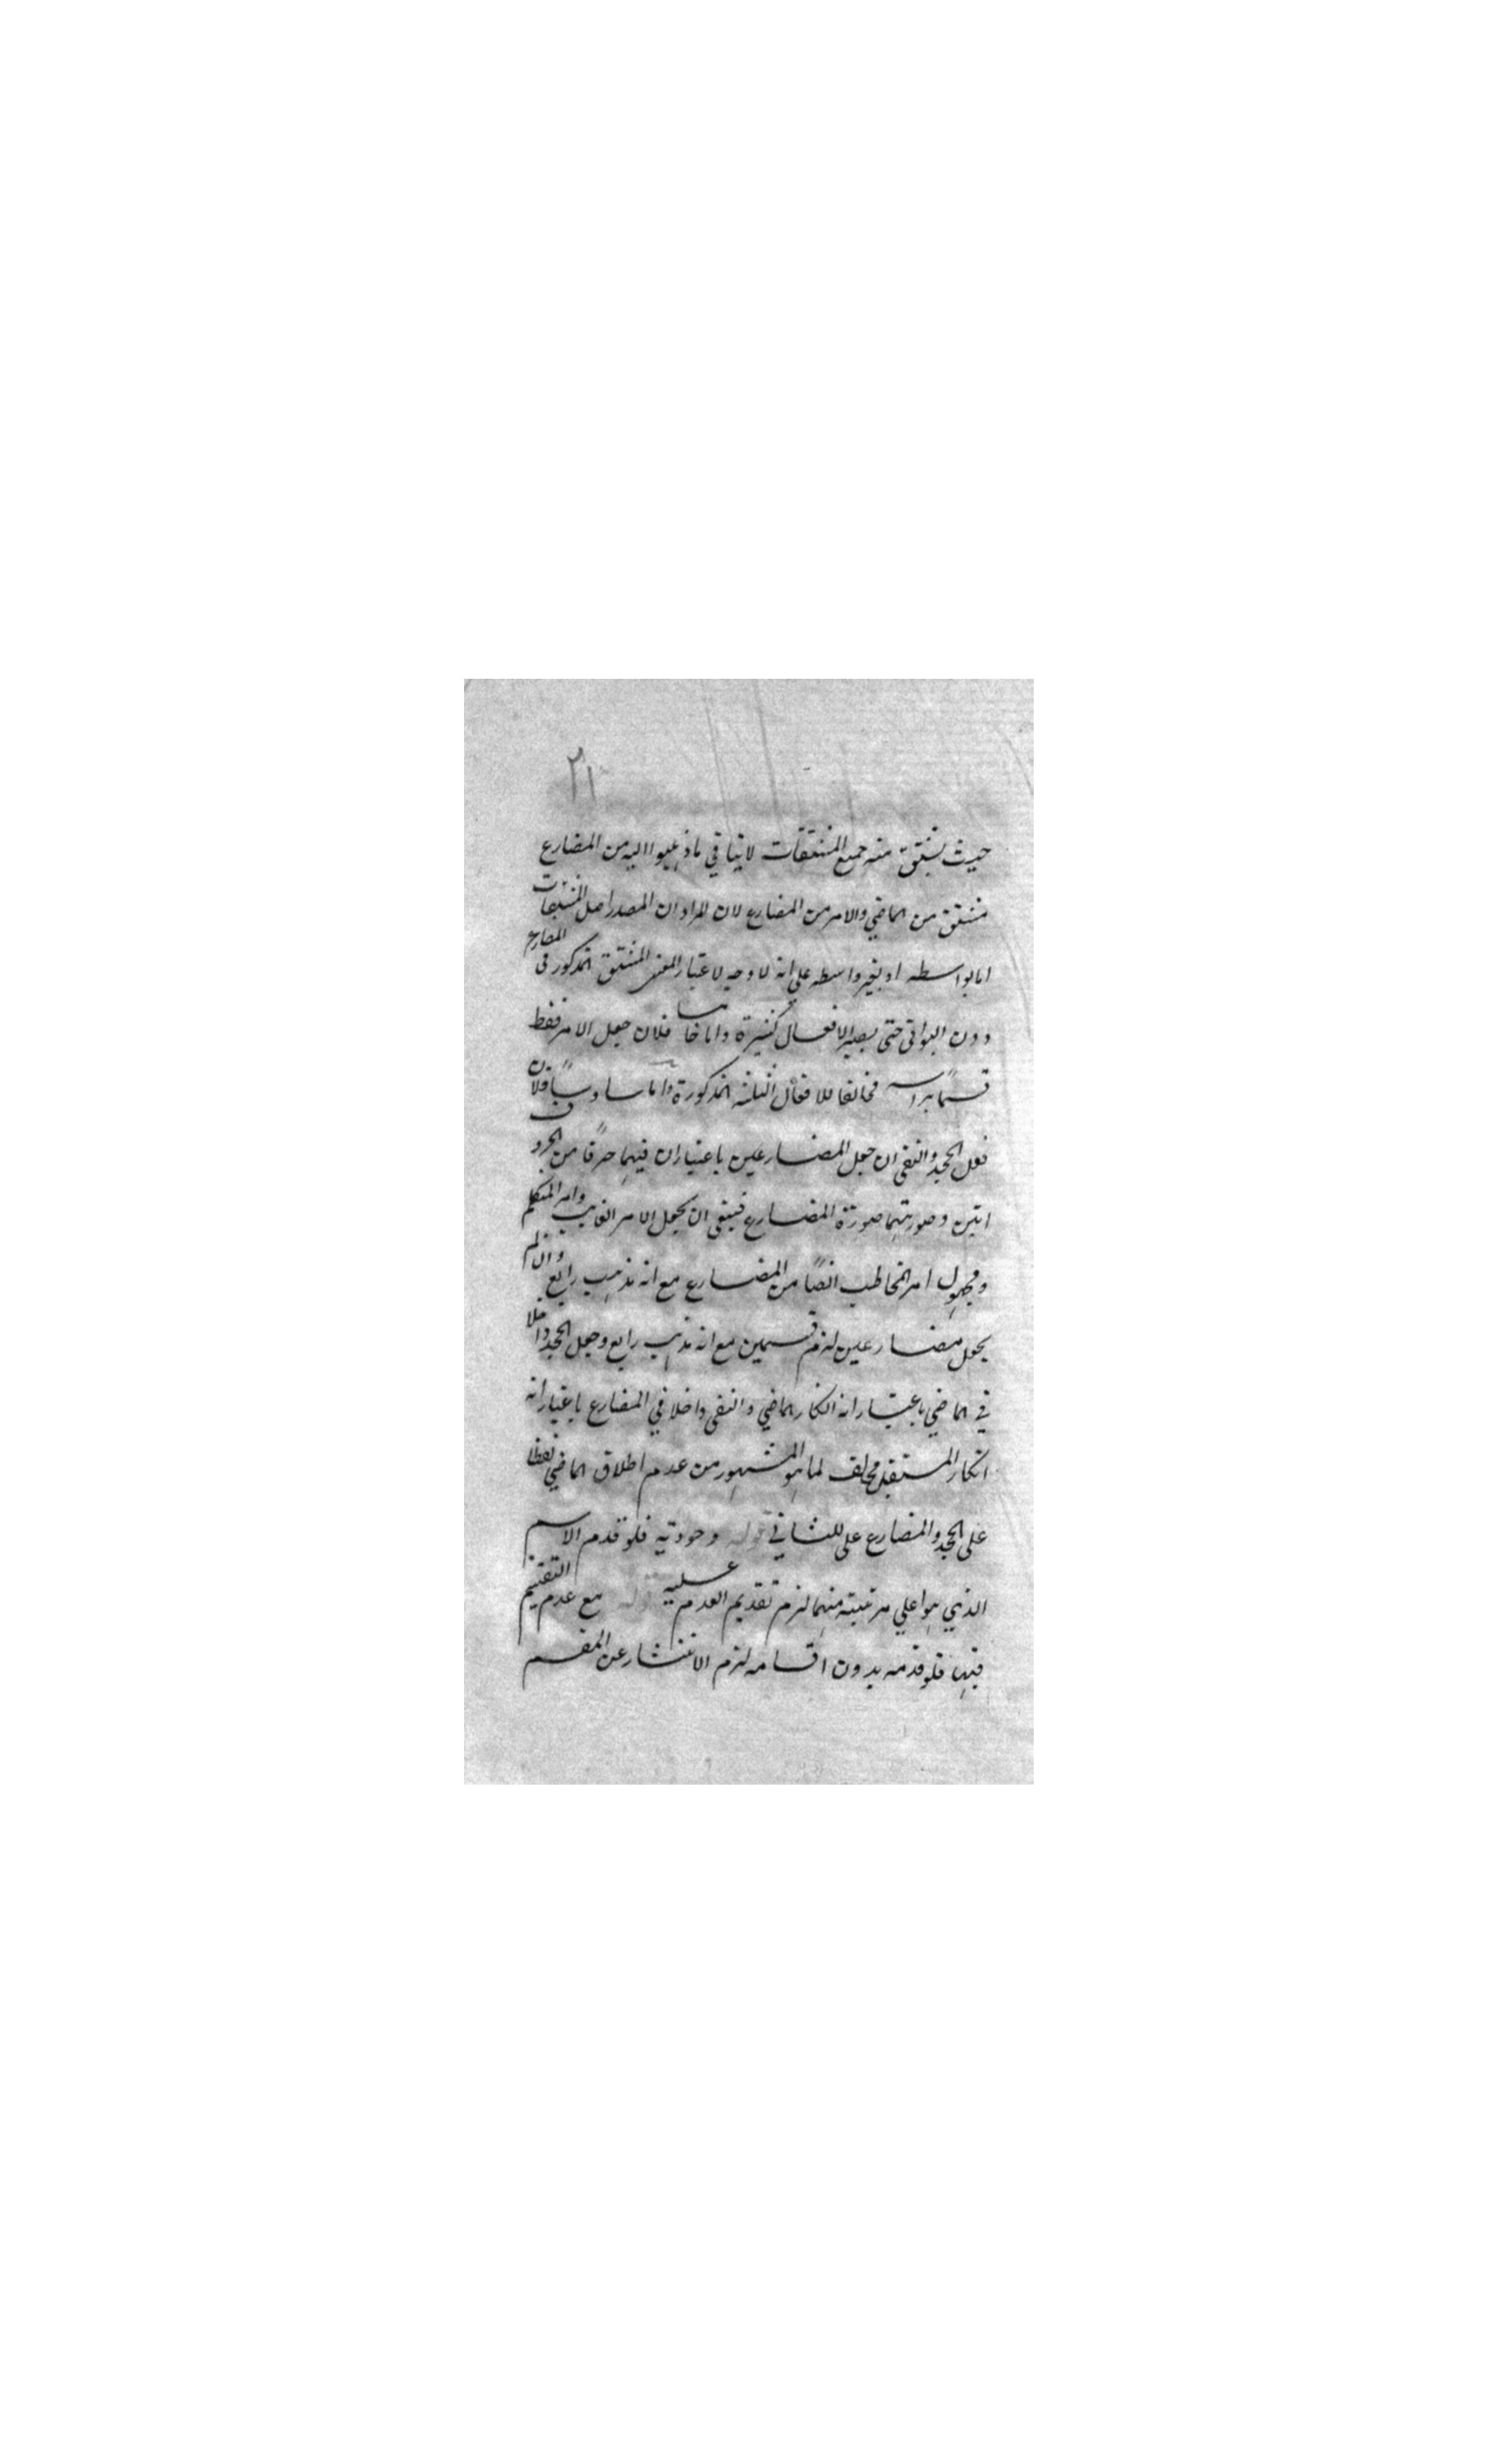 ٢١
حيث يشتق منه جميع المشتقات لاينافي ماذهبوا اليه من المضارع
مشتق من الماضي والامر من المضارع لان المراد ان المصدر اصل المشتقات
اما بواسطه او بغير واسطه على انه لا وجه لاعتبار المعنى المشتق المذكور في المضارع
دون البواقي حتى يصير الافعال كثيرة واما خامسا فلان جعل الامر فقط
قسما براسه مخالفا للافعال الثلثه المذكورة واما سادسًا فلان
فعل الجحد والنفي ان جعل المضارعين باعتبار ان فيهما حرفًا من الحروف
اتين وصورتهما صورة المضارع فينبغي ان يجعل الامر الغايب وامر المتكلم
ومجهول امر المخاطب ايضًا من المضارع مع انه مذهب رابع وان لم
يجعل مضارعين لزم قسمين مع انه مذهب رابع وجعل الجحد داخلا
في الماضي باعتبار انه انكار الماضي والنفي داخلا في المضارع باعتبار انه
انكار المستقبل مخالف لما هو المشهور من عدم اطلاق الماضي لفظا
على الجحد والمضارع على للثاني قوله وجوديه فلو قدم الاسم
الذي هو اعلي مرتبته منهما لزم تقديم العدم عليه قوله مع عدم التقسيم
فيها فلو قدمه بدون اقسامه لزم الانتشار عن المقسم